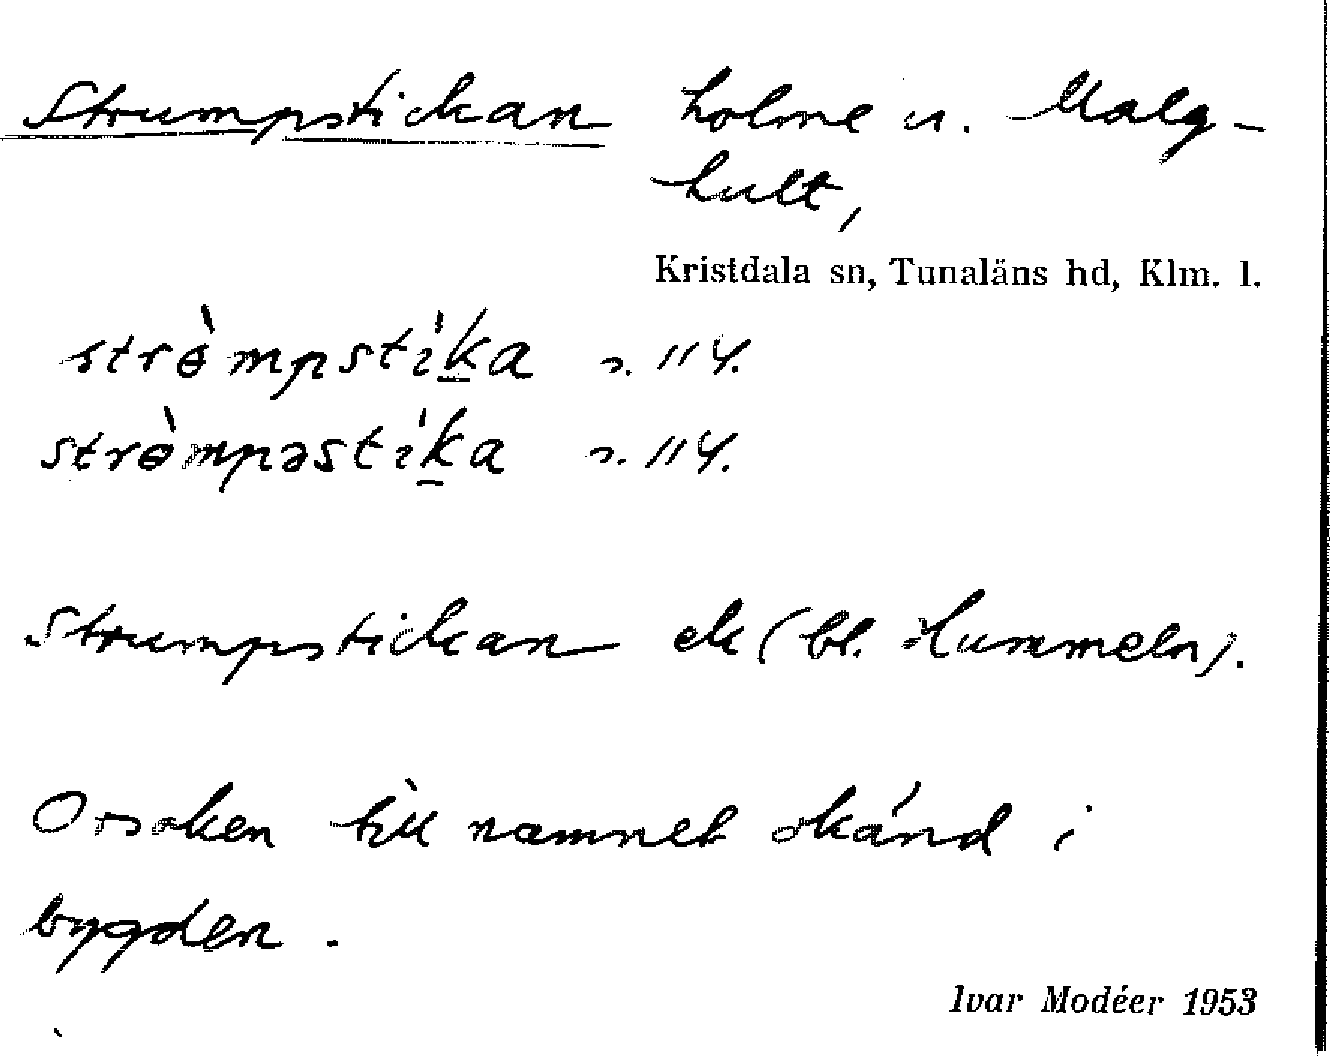 Strumpstickan holme u. Malg-
hult,
Kristdala sn, Tunaläns hd, Klm. l.
strɵ̀mpsti̍ḵa s. 114.
strɵ̀mpəsti̍ḵa s. 114.
Strumpstickan ek (bl. Hummeln).
Orsaken till namnet okänd i
bygden.
Ivar Modéer 1953